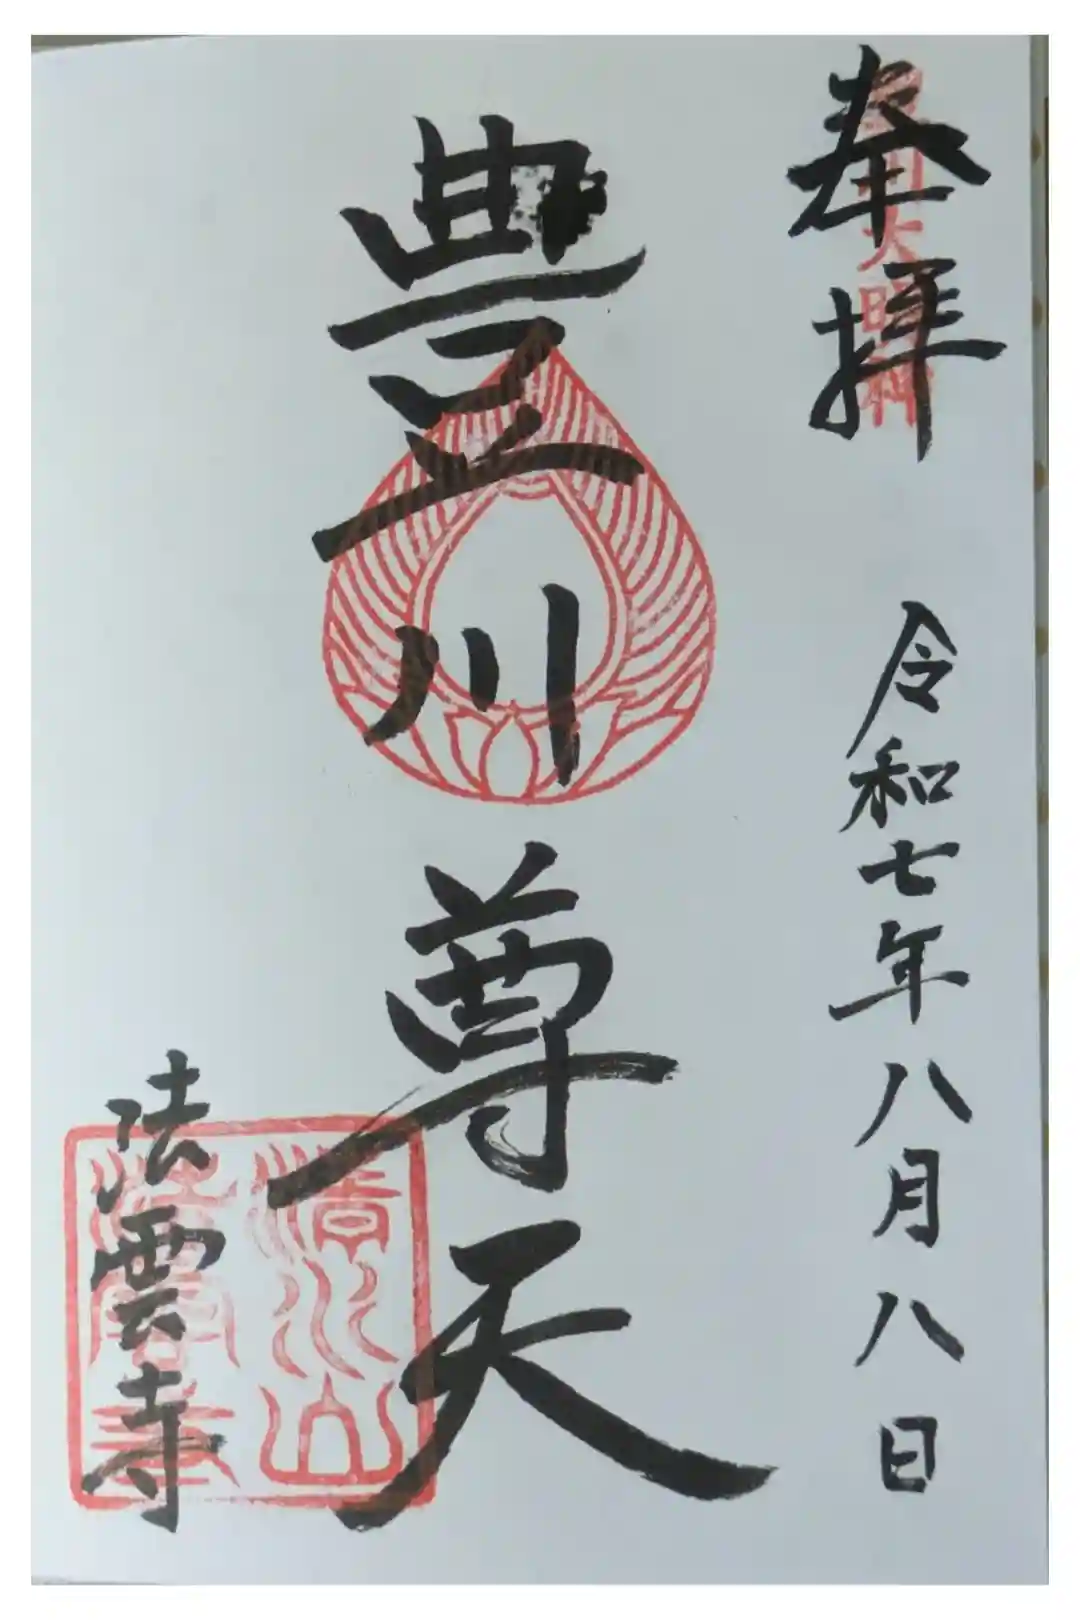 奉拝
令和七年八月八日
豊川尊天
法雲寺